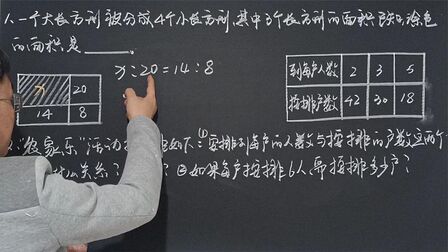 1.一个大长方形被分成4个小长方形,其中3个长方形的面积
涂色
的面积是____。
x:20=14:8
x 20
14 8
到每户人数 2 3 5
接待户数 42 30 18
"农家乐"活动
如下:①要排到每户的人数与接排的户数这两个
什么关系?
②如果每户接排6人,需接排多少户?